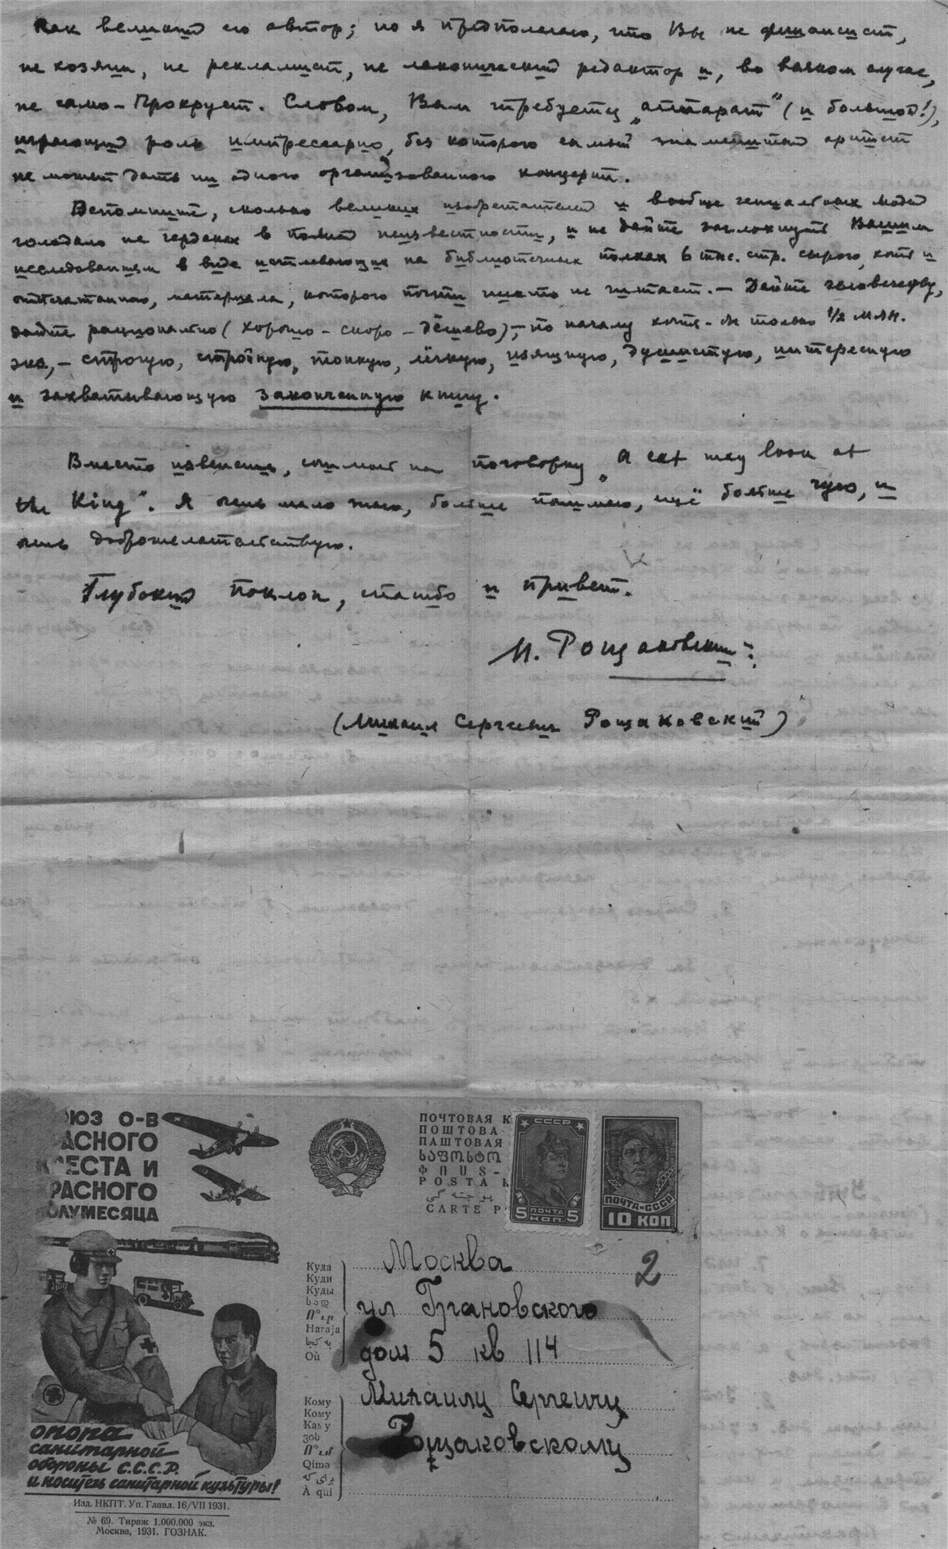 как великий его автор; но я предполагаю, что Вы не финансист,
не хозяин, не рекламист, не лаконический редактор и, во всяком случае,
не само-Прокруст. Словом, Вам требуется „аппарат" (и большой!),
играющий роль импрессарио, без которого самый знаменитый артист
не может дать ни одного организованного концерта.
Вспомните, сколько великих изобретателей и вообще гениальных людей
голодало на чердаках в полной неизвестности, и не дайте заглохнуть Вашим
исследованиям в виде истлевающих на библиотечных полках 6 тыс. стр. сырого, хотя и
отпечатанного, материала, которого почти никто не читает. – Дайте человечеству,
дайте рационально (хорошо – скоро – дёшево), – по началу хотя-бы только 1/2 млн.
экз, – строгую, стройную, тонкую, лёгкую, изящную, душистую, интересную
и захватывающую законченную книгу.
Вместо извинения, сошлюсь на поговорку „A cat may look at
the King". Я очень мало знаю, больше понимаю, ещё больше чую, и
очень доброжелательствую.
Глубокий поклон, спасибо и привет.
М. Рощаковский
(Михаил Сергеевич Рощаковский)
ОЮЗ О-В
РАСНОГО
КРЕСТА И
КРАСНОГО
ПОЛУМЕСЯЦА
опора
санитарной
обороны С.С.С.Р.
и носитель санитарной культуры!
Изд. НКПТ. Уп. Главл. 16/VII 1931.
№ 69. Тираж 1.000.000 экз.
Москва, 1931. ГОЗНАК.
ПОЧТОВАЯ К
ПОШТОВА
ПАШТОВАЯ
ՓՈՍ-
POSTA K
CARTE P
СССР
5 ПОЧТА 5
КОП.
ПОЧТА-СССР
10 КОП
2
Куда
Куди
Куды
Haraja
Où
Москва
ул Грановского
дом 5 кв 114
Кому
Кому
Каму
Qima
À qui
Михаилу Сергеичу
Рощаковскому